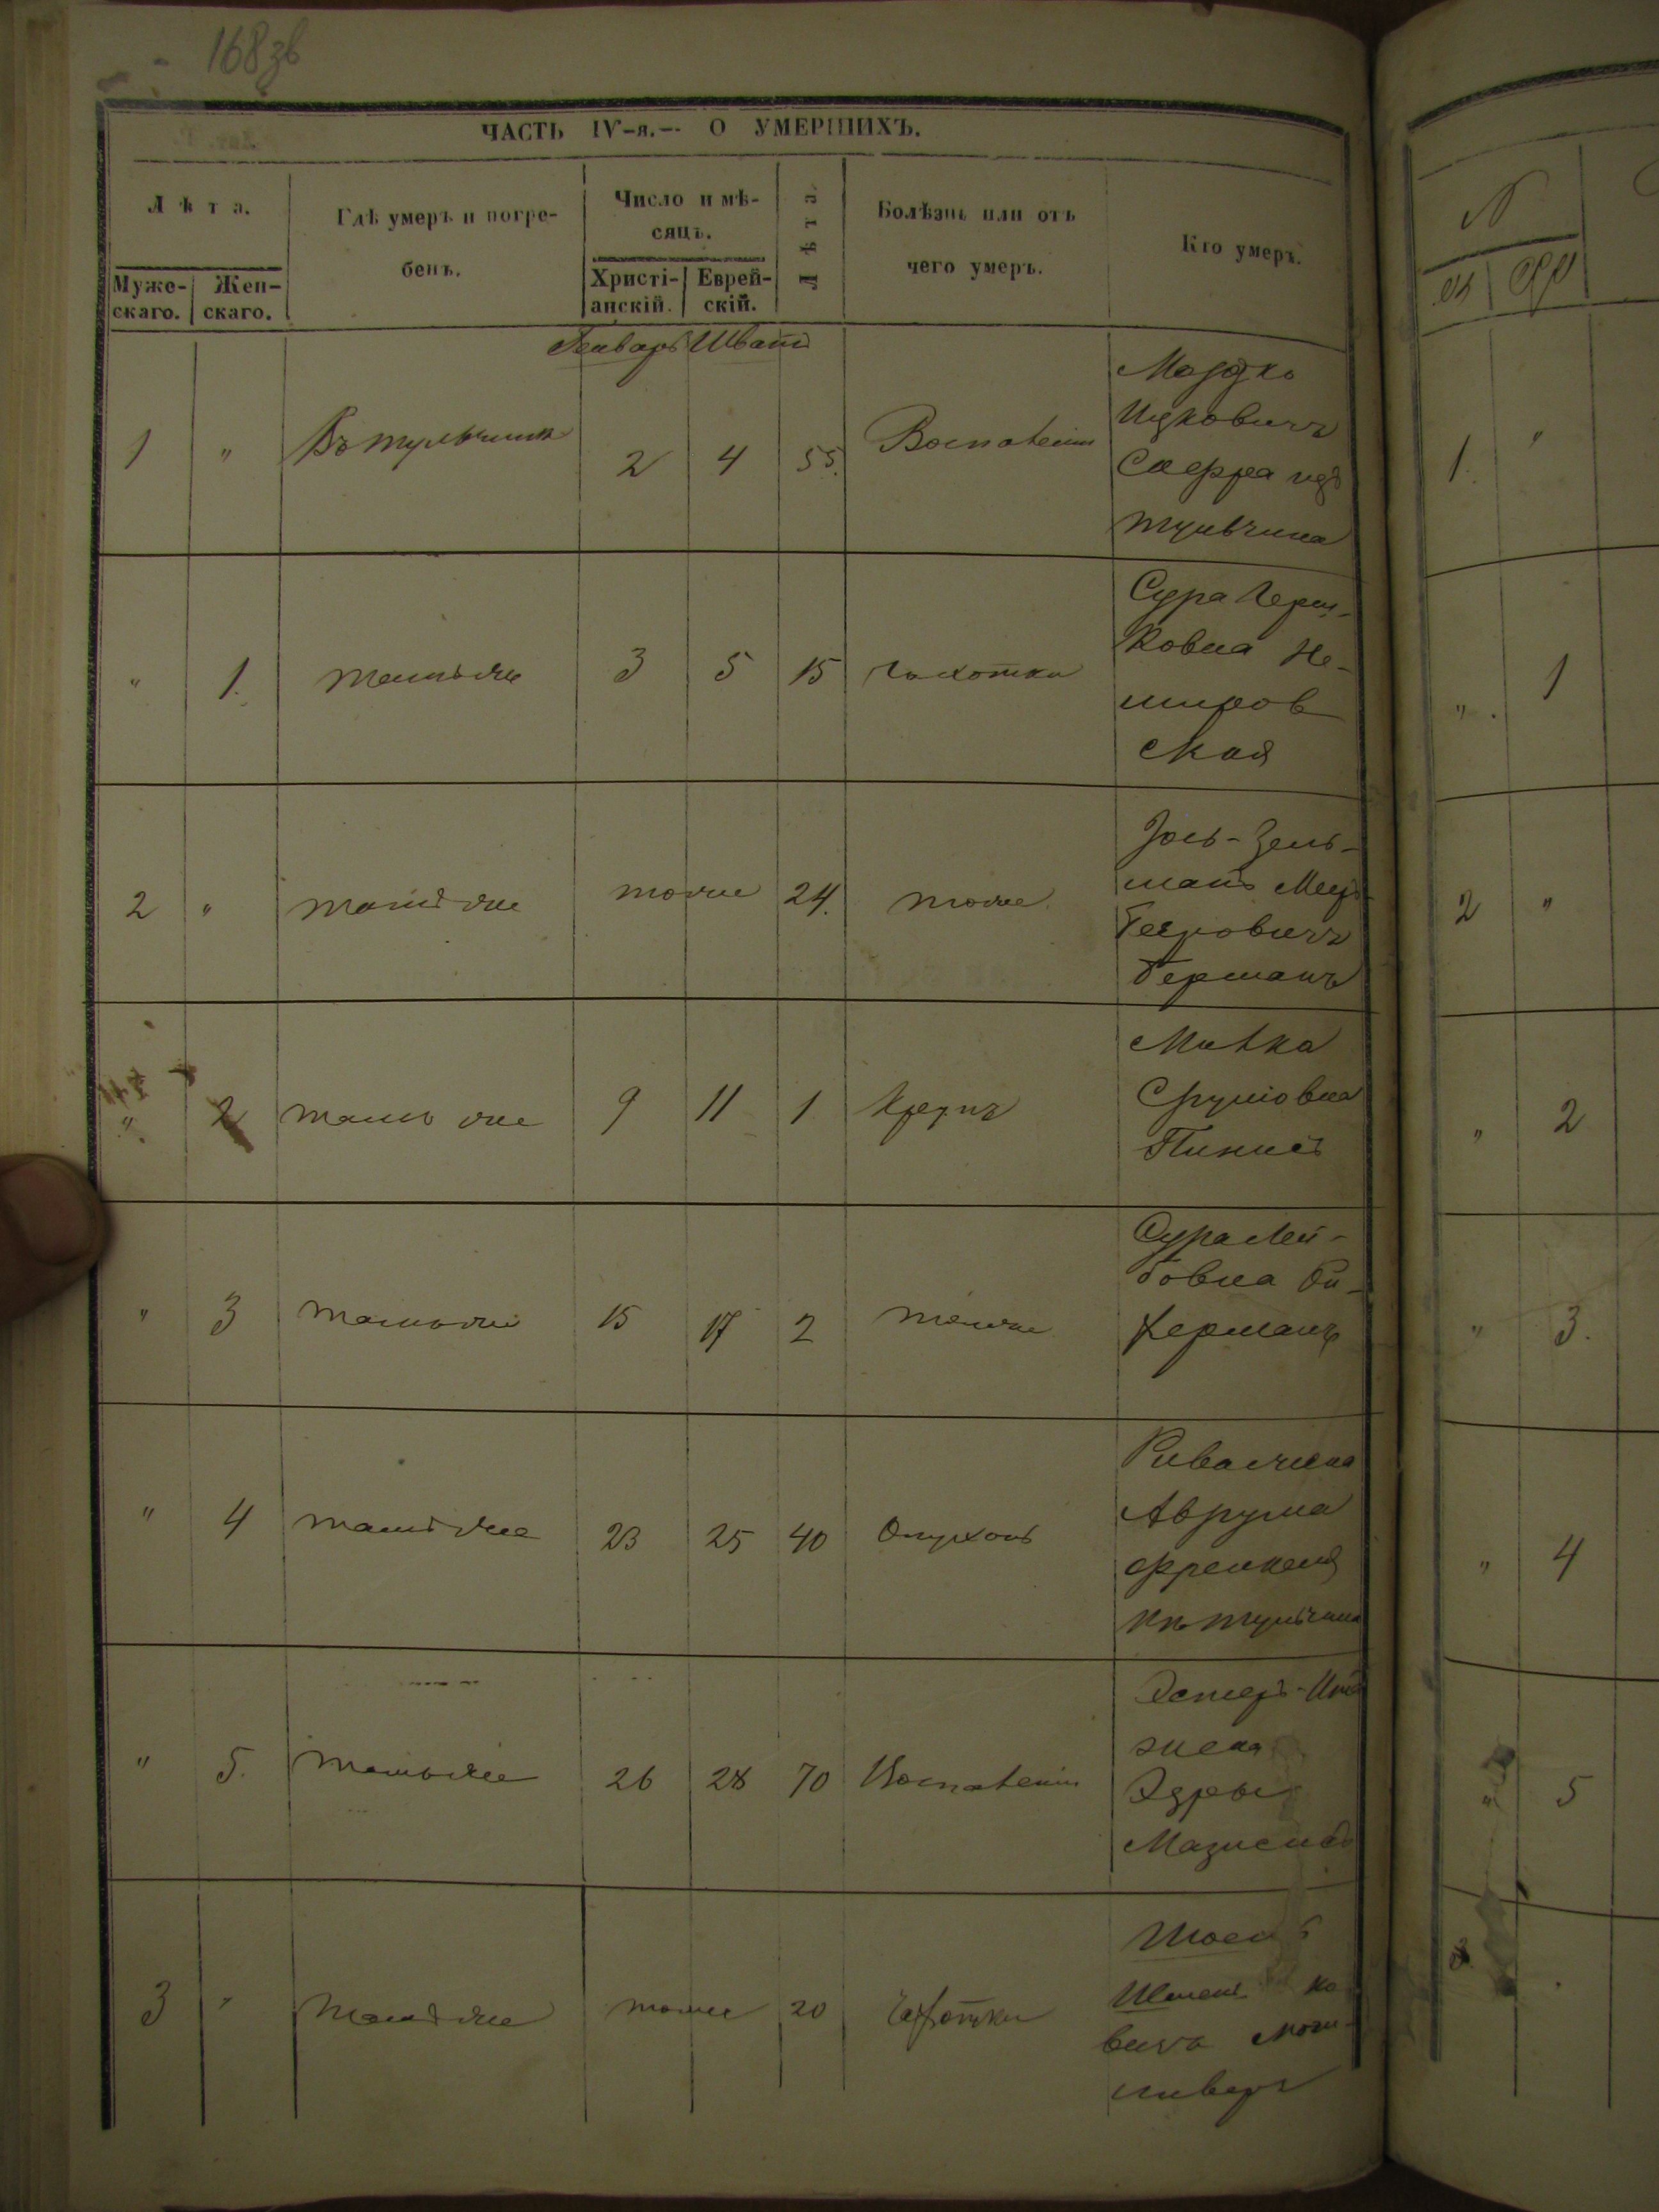 168 зв
ЧАСТЬ IV-я.— О УМЕРШИХЪ.
Лѣта.
Мужескаго.
Женскаго.
Гдѣ умеръ и погре-
бенъ.
Число и мѣ-
сяцъ.
Христі-
анскій.
Еврей-
скій.
Лѣта.
Болѣзнь или отъ
чего умеръ.
Кто умеръ.
Январь Шватъ
1 " Въ Тульчинѣ 2 4 55. Воспаленіи
Мордко
Ицковичъ
изъ
Тульчина
" 1. тамъ же 3 5 15 чахотки
Сура Герш-
ковна Не-
миров
ская
2 " тамъ же тоже 24. тоже
Іось-Зель-
манъ Меер
Беровичъ
Берманъ
" 2 тамъ же 9 11 1 Крупъ
Малка
Срулiовна
" 3 тамъ же 15 17 2 тоже
Сура Лей-
бовна
керманъ
" 4 тамъ же 23 25 40 Опухоль
Рива жена
Аврума
Френкеля
изъ Тульчина
" 5. тамъ же 26 28 70 Воспаленіи
Эстеръ-
жена
3 " тамъ же тоже 20 Чахотки
вичъ Моги-
ливеръ
1. "
" 1
2 "
" 2
" 3.
" 4
" 5